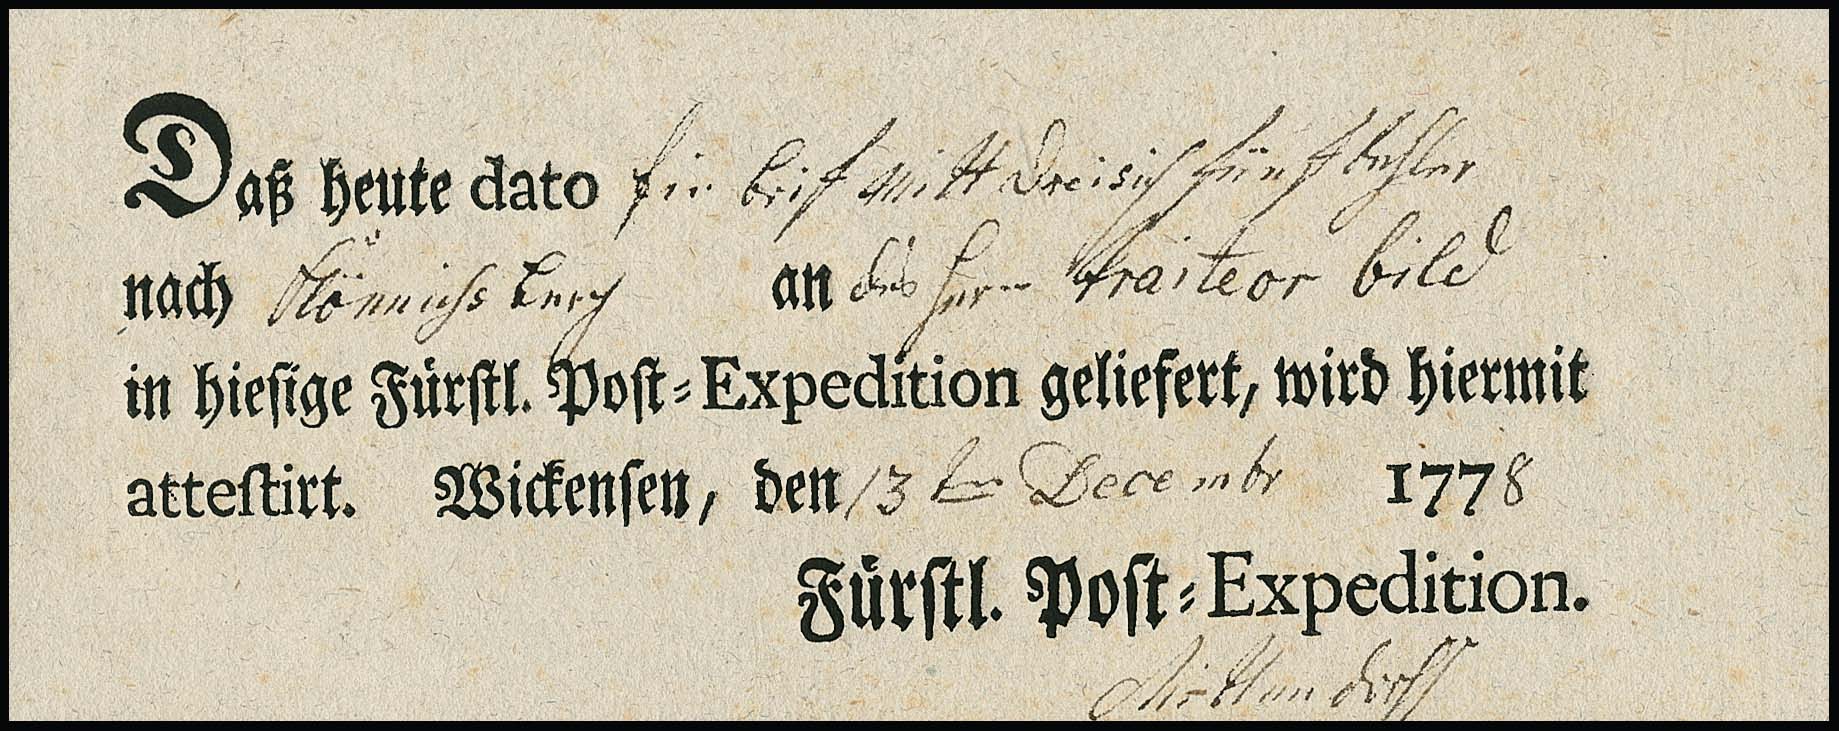 Daß heute dato Ein brif mitt Dreisich fünf tahler
nach Könnichs berg an des Herrn traiteor bild
in hiesige Fürstl. Post-Expedition geliefert, wird hiermit
attestirt. Wickensen, den 13 ten Decembr 1778
Fürstl. Post-Expedition.